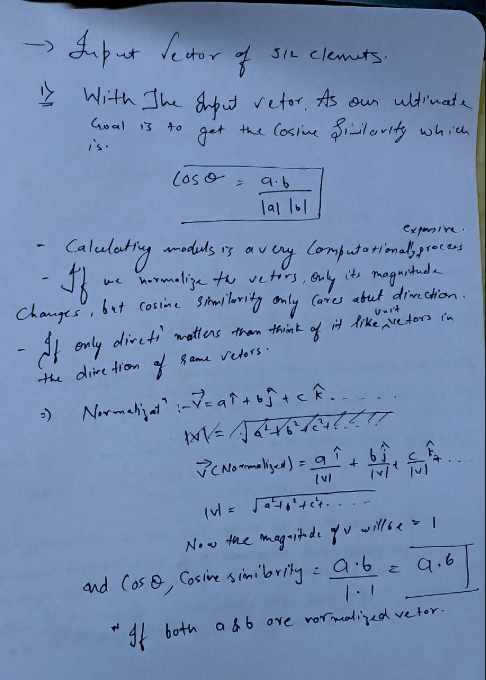 → Input Vector of 512 elements.
1) With The Input vetor, As our ultimate
Goal is to get the Cosine Similarity which
is.
Cos θ = a.b / |a| |b|
- Calculating moduls is a very Computationally expensive process
- If we normalize the vetors, only its magnitude
Changes, but cosine similarity only Cares about direction.
- If only directⁿ matters than think of it like unit vetors in
the direction of same vetors.
⇒ Normalizatⁿ :- v⃗ = a î + b ĵ + c k̂ . . . . .
|v| = √a²+b²+c²+....
v⃗ (Normalized) = a î / |v| + b ĵ / |v| + c k̂ / |v| + . . .
|v| = √a²+b²+c²+. . . .
Now the magnitude of v will be = 1
and Cos θ, Cosine similarity = a.b / 1.1 = a.b
* If both a & b are normalized vetor.